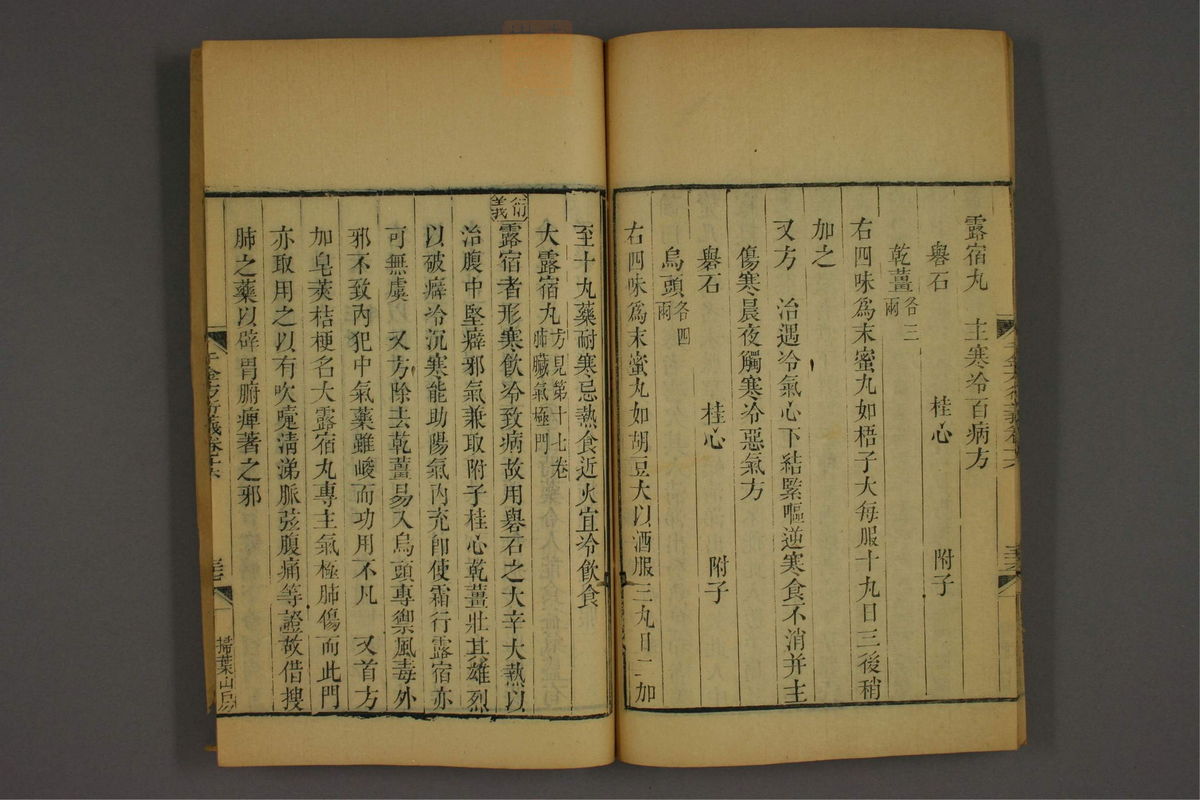 露宿丸　主寒冷百病方
礜石　桂心　附子
乾薑各三兩
右四味爲末蜜丸如梧子大每服十丸日三後稍
加之
又方　治遇冷氣心下結緊嘔逆寒食不消并主
傷寒晨夜觸寒冷惡氣方
礜石　桂心　附子
烏頭各四兩
右四味爲末蜜丸如胡豆大以酒服三丸日二加
至十丸藥耐寒忌熱食近火宜冷飲食
大露宿丸方見第十七卷肺臟氣極門
衍義露宿者形寒飲冷致病故用礜石之大辛大熱以
治腹中堅癖邪氣兼取附子桂心乾薑壯其雄烈
以破癖冷沉寒能助陽氣內充卽使霜行露宿亦
可無虞以　又方除去乾薑易入烏頭專禦風毒外
邪不致內犯中氣藥雖峻而功用不凡　又首方
加皂莢桔梗名大露宿丸專主氣極肺傷而此門
亦取用之以有吹嚏淸涕脈弦腹痛等證故借搜
肺之藥以辟胃腑痺著之邪
千金方衍義卷十六
掃葉山房